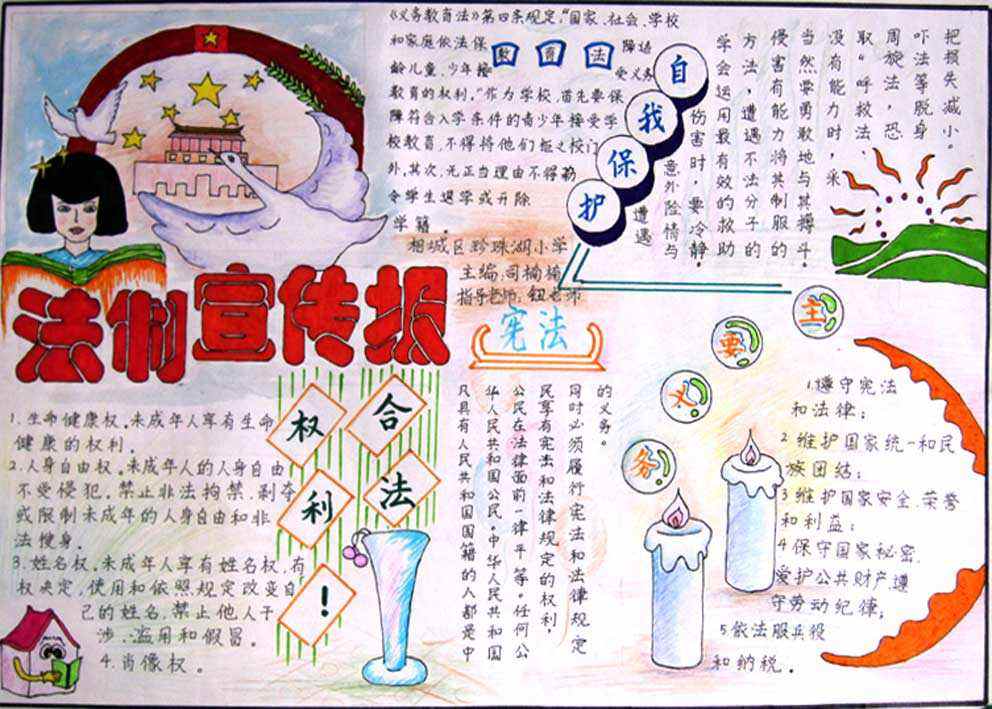 《义务教育法》第四条规定,“国家、社会、学校
和家庭依法保
教育法
障适
龄儿童、少年接
受义务
教育的权利。”作为学校,首先要保
障符合入学条件的青少年接受学
校教育,不得将他们拒之校门
外,其次,无正当理由不得勒
令学生退学或开除
学籍。
自我保护
遭遇
意外险情与
伤害时,要冷静。
学会运用最有效的救助
方法,遭遇不法分子的
侵害有能力将其制服的
当然要勇敢地与其搏斗。
没有能力时,采
取“呼救法、
周旋法、恐
吓法等,脱身
把损失减小。
相城区珍珠湖小学
主编:司楠楠
指导老师:钮老师
法制宣传报
宪法
凡具有人民共和国国籍的人都是中
华人民共和国公民。中华人民共和国
公民在法律面前一律平等。任何公
民享有宪法和法律规定的权利,
同时必须履行宪法和法律规定
的义务。
合法
权利!
1.生命健康权。未成年人享有生命
健康的权利。
2.人身自由权。未成年人的人身自由
不受侵犯。禁止非法拘禁、剥夺
或限制未成年的人身自由和非
法搜身。
3.姓名权。未成年人享有姓名权,有
权决定,使用和依照规定改变自
己的姓名,禁止他人干
涉、滥用和假冒。
4.肖像权。
主要义务
1.遵守宪法
和法律;
2维护国家统一和民
族团结;
3维护国家安全、荣誉
和利益;
4保守国家秘密.
爱护公共财产遵
守劳动纪律;
5依法服兵役
和纳税。